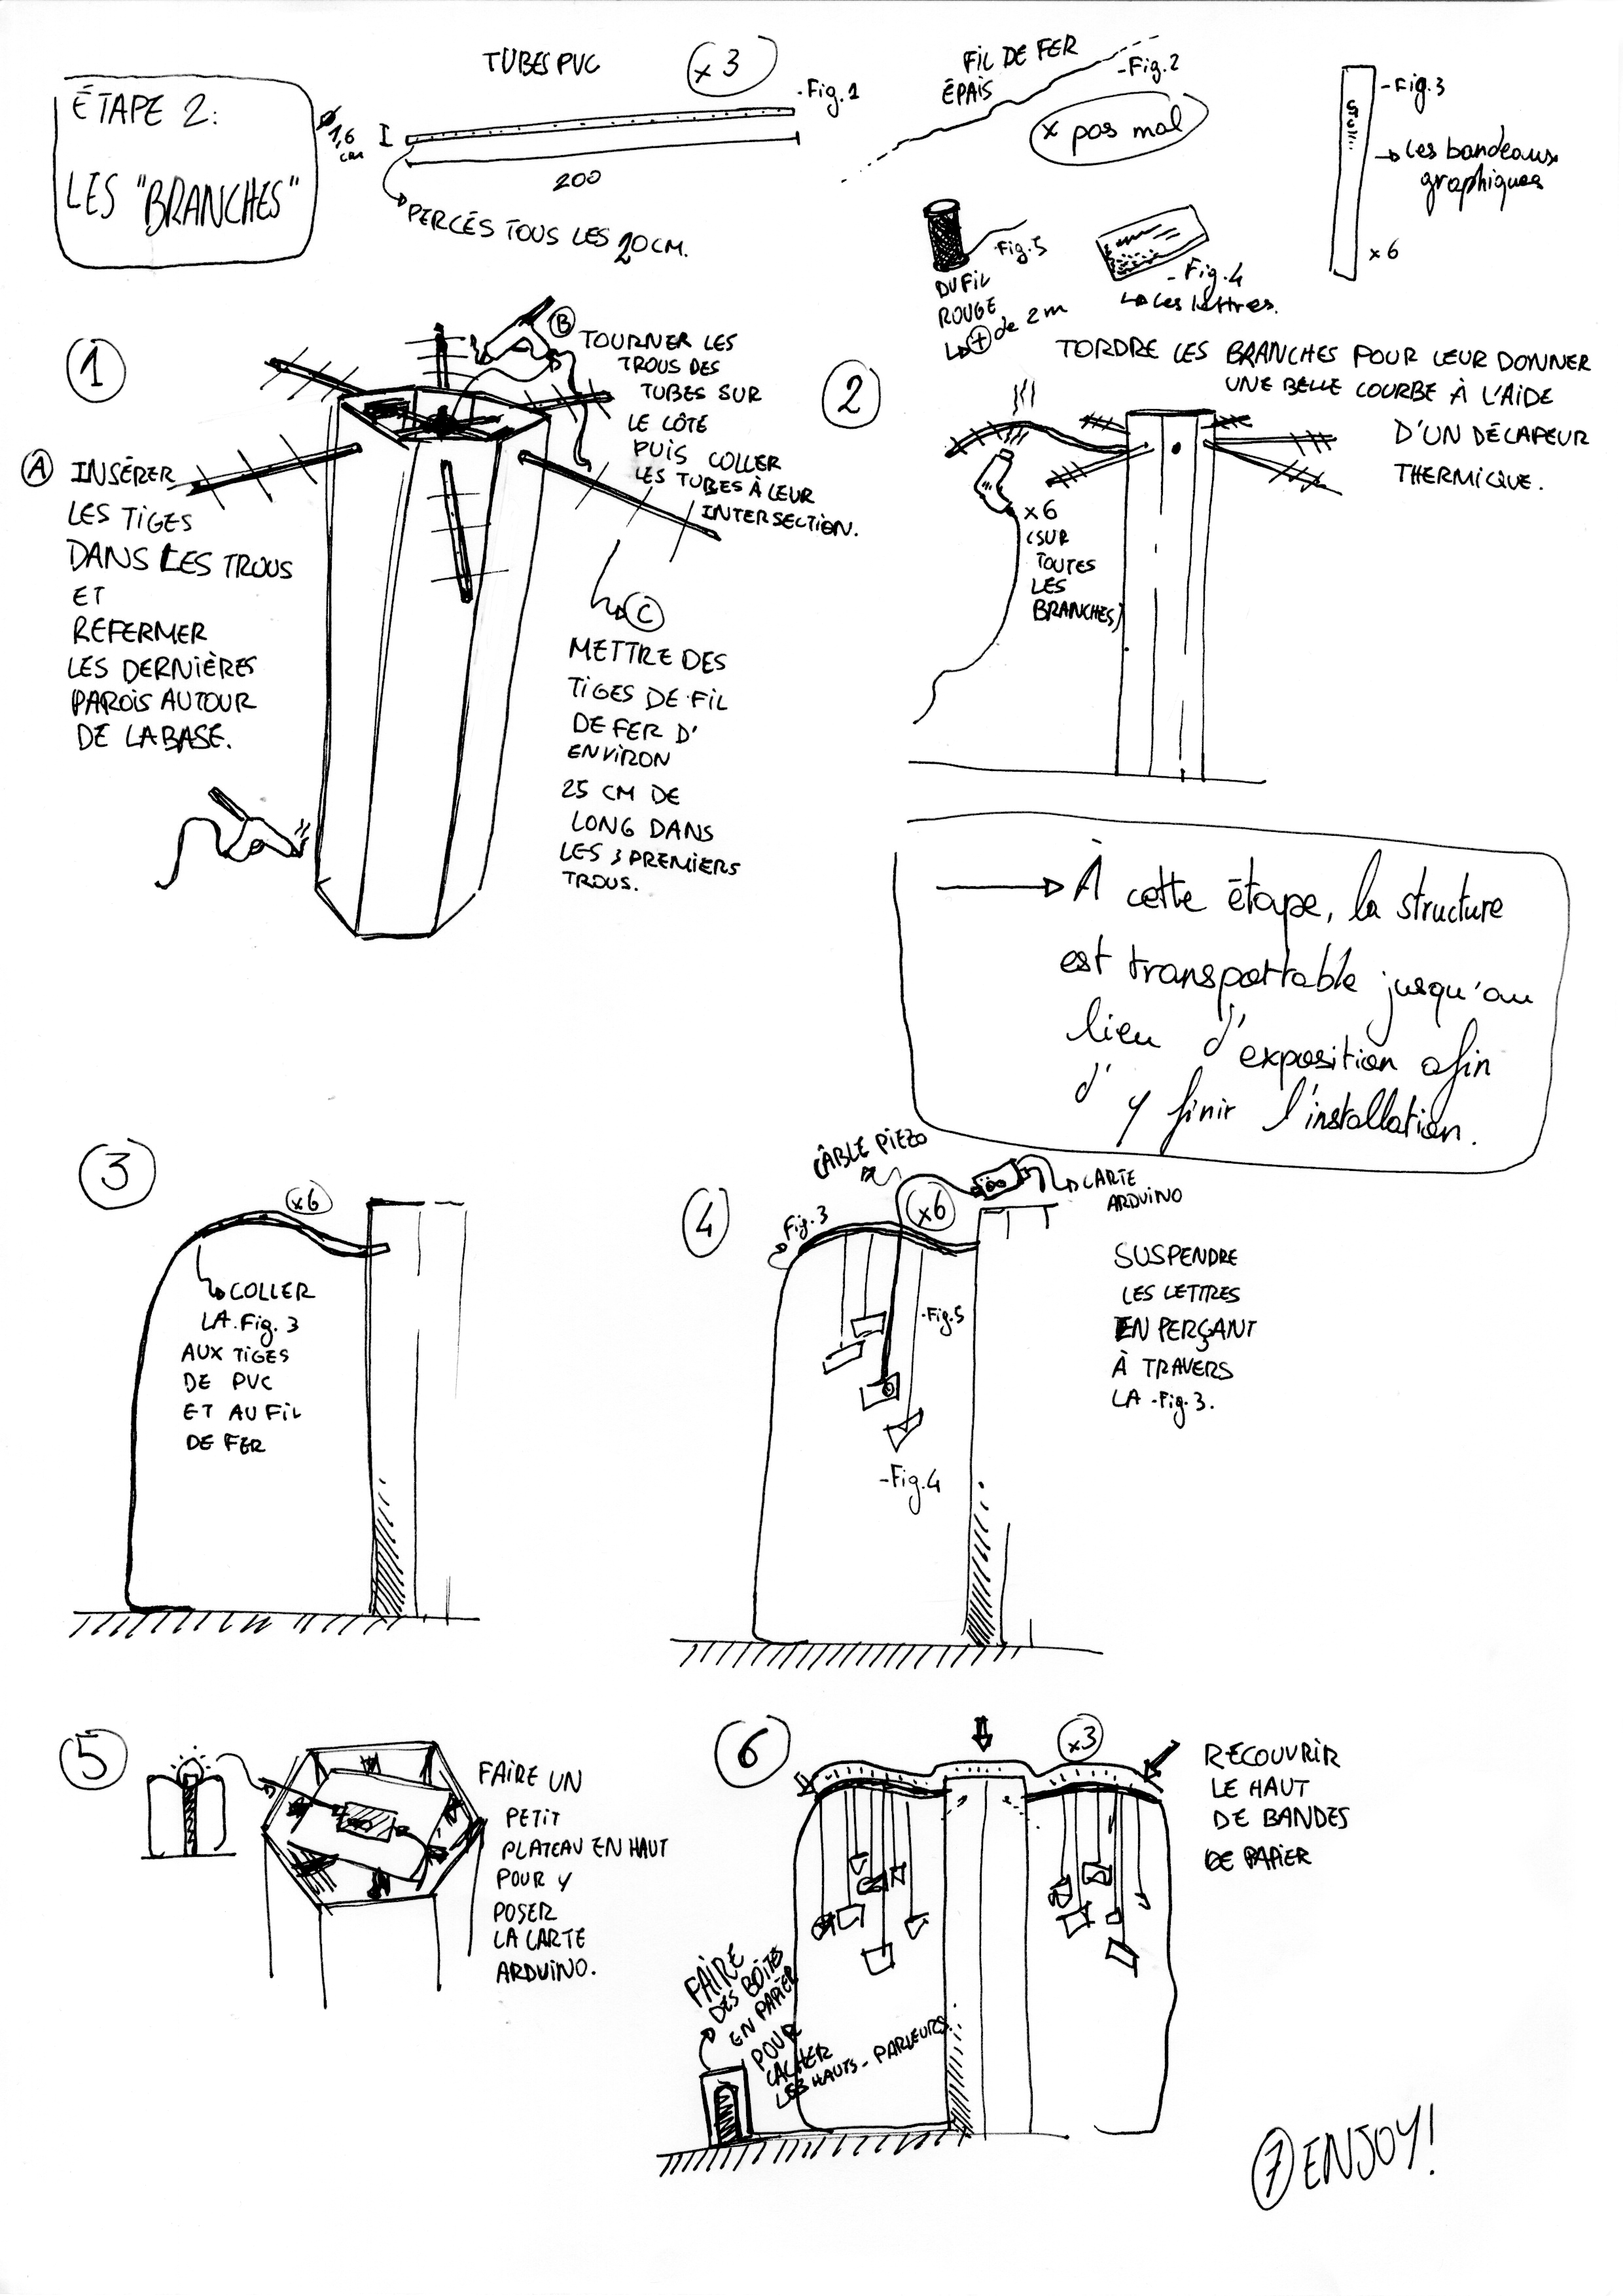 ÉTAPE 2:
LES "BRANCHES"
TUBES PVC
x 3
-Fig.1
Ø 1,6
cm
200
PERCÉS TOUS LES 20CM.
FIL DE FER
ÉPAIS
-Fig.2
x pas mal
-Fig.3
Les bandeaux
graphiques
x6
-Fig.5
DU FIL
ROUGE
+ de 2m
-Fig.4
Les lettres.
1
A INSÉRER
LES TIGES
DANS LES TROUS
ET
REFERMER
LES DERNIÈRES
PAROIS AUTOUR
DE LA BASE.
B TOURNER LES
TROUS DES
TUBES SUR
LE CÔTÉ
PUIS COLLER
LES TUBES À LEUR
INTERSECTION.
C
METTRE DES
TIGES DE FIL
DE FER D'
ENVIRON
25 CM DE
LONG DANS
LES 3 PREMIERS
TROUS.
2
TORDRE LES BRANCHES POUR LEUR DONNER
UNE BELLE COURBE À L'AIDE
D'UN DÉCAPEUR
THERMIQUE.
x6
(SUR
TOUTES
LES
BRANCHES)
À cette étape, la structure
est transportable jusqu'au
lieu d'exposition afin
d'y finir l'installation.
3
x6
COLLER
LA Fig. 3
AUX TIGES
DE PVC
ET AU FIL
DE FER
4
CÂBLE PIEZO
CARTE
ARDUINO
x6
Fig.3
-Fig.5
-Fig.4
SUSPENDRE
LES LETTRES
EN PERÇANT
À TRAVERS
LA -Fig.3.
5
FAIRE UN
PETIT
PLATEAU EN HAUT
POUR Y
POSER
LA CARTE
ARDUINO.
6
x3
RECOUVRIR
LE HAUT
DE BANDES
DE PAPIER
FAIRE
DES BOÎTES
EN PAPIER
POUR
CACHER
LES HAUTS-PARLEURS.
7 ENJOY!